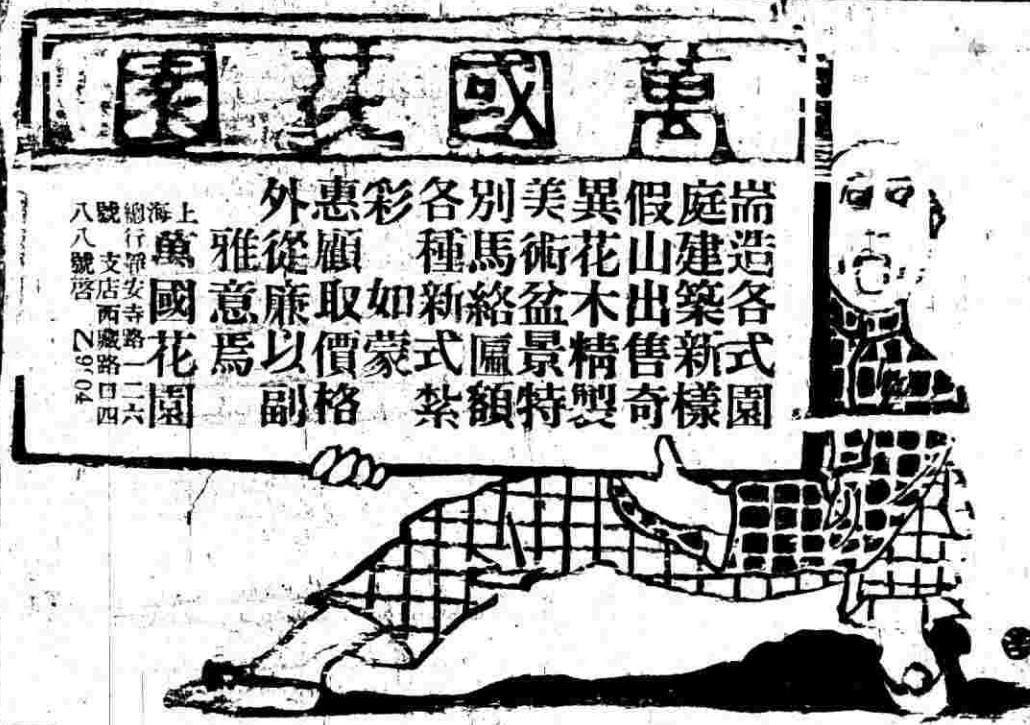 萬國花園
耑造各式園
庭建築新樣
假山出售奇
異花木精製
美術盆景特
別馬絡匾額
各種新式紮
彩 如蒙
惠顧取價格
外從廉以副
雅意焉
上海萬國花園
總行靜安寺路一二六
號 支店西藏路口四
八八號啓